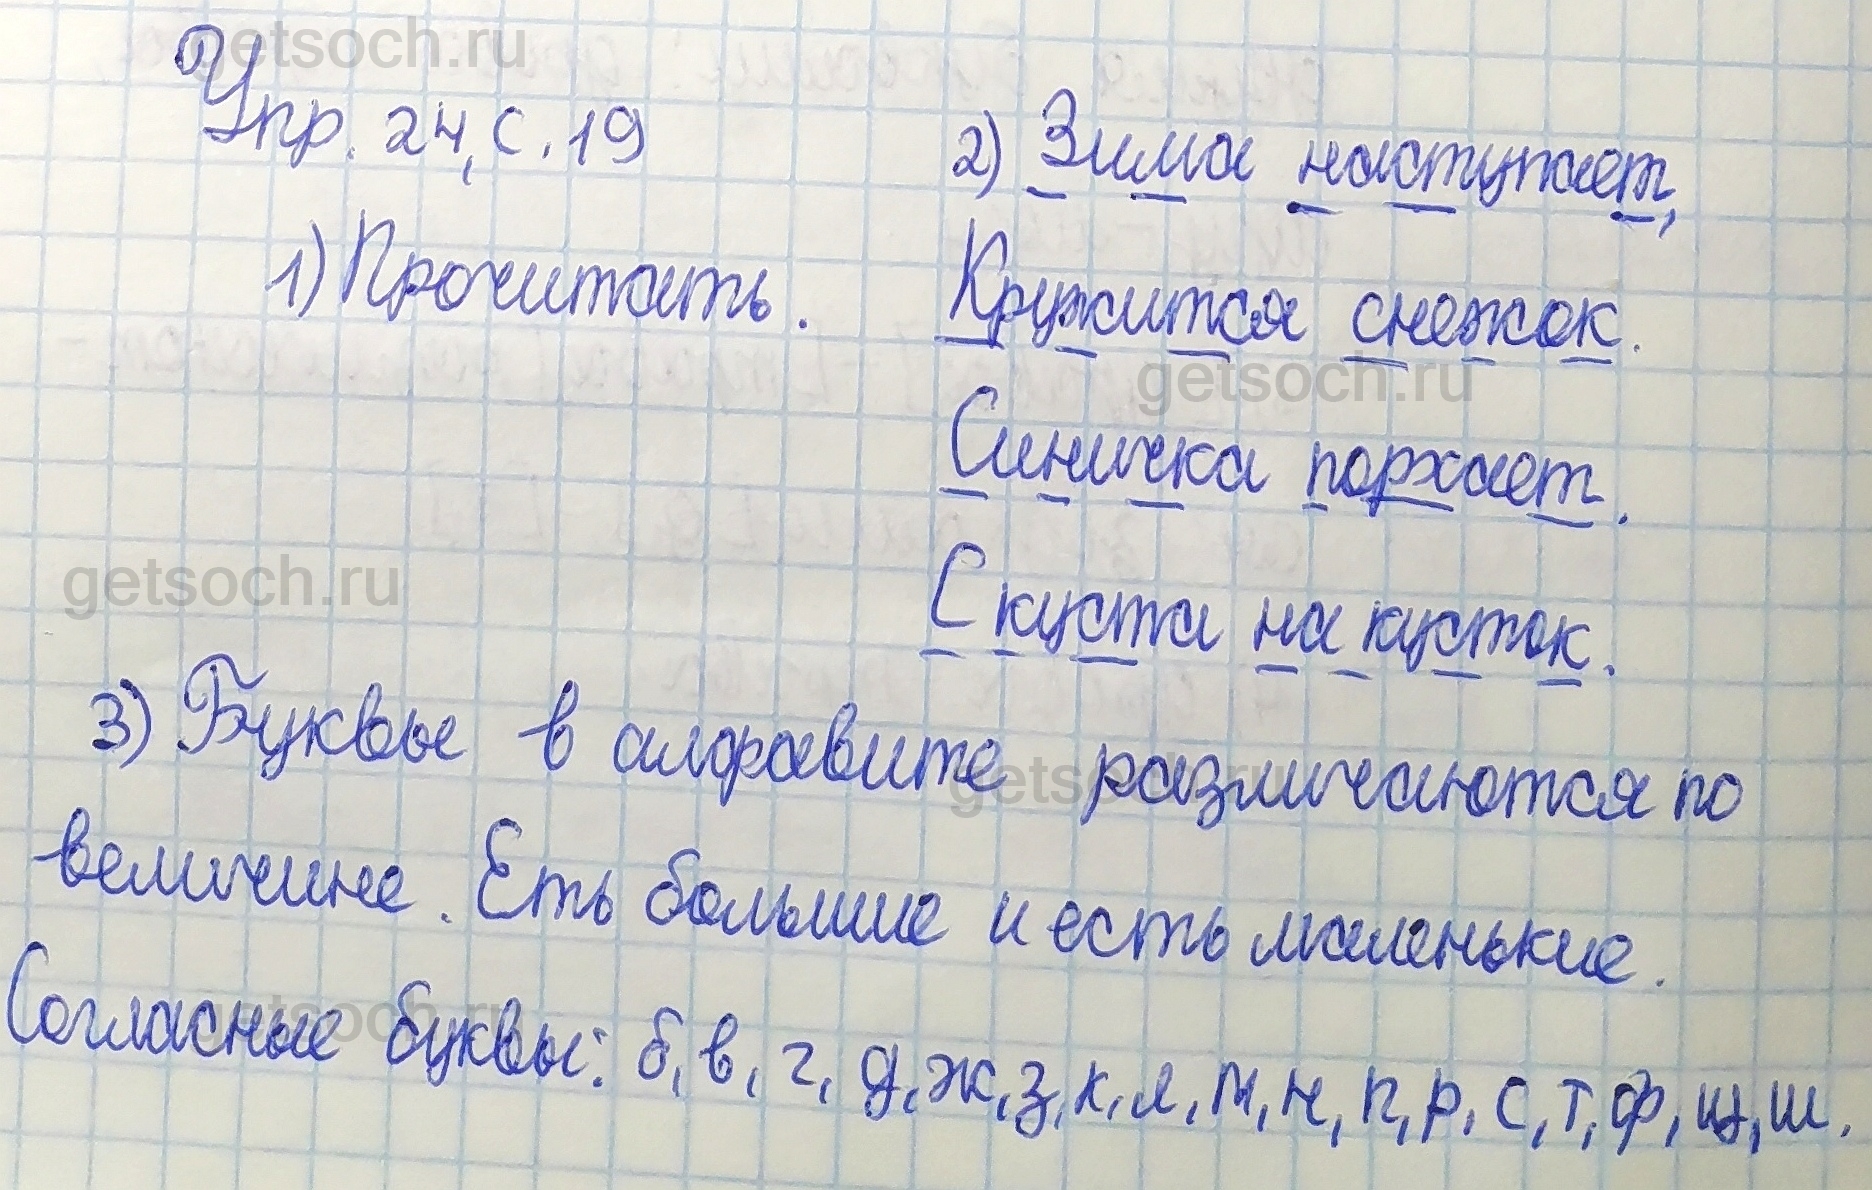 getsoch.ru
Упр. 24, с. 19
1) Прочитать.
2) Зима наступает,
Кружится снежок.
getsoch.ru
Синичка порхает.
С куста на кусток.
getsoch.ru
3) Буквы в алфавите различаются по
getsoch.ru
величине. Еть большие и есть маленькие.
getsoch.ru
Согласные буквы: б, в, г, д, ж, з, к, л, м, н, п, р, с, т, ф, щ, ш.